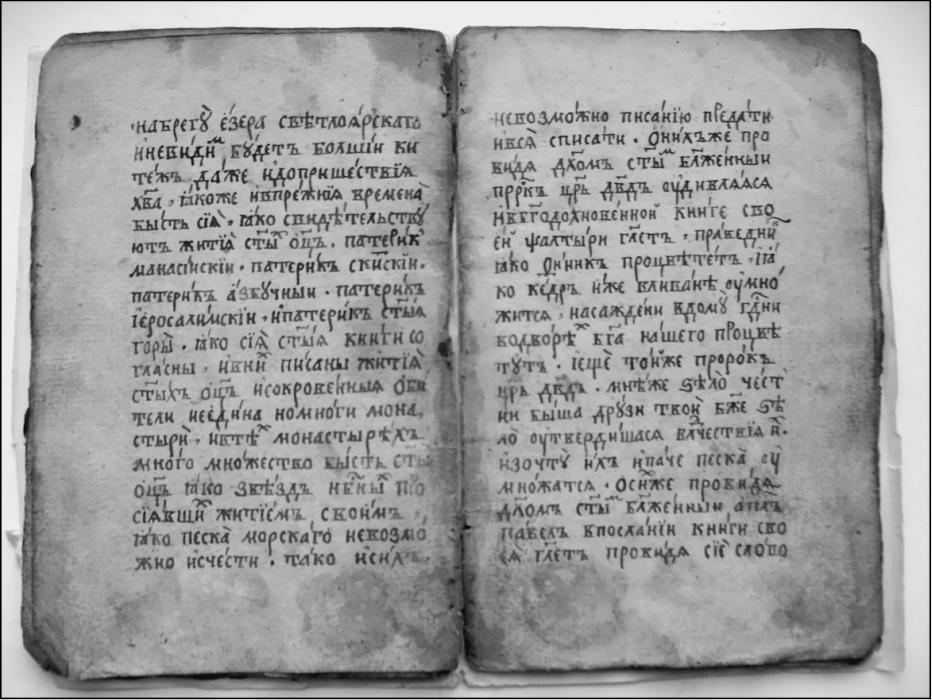 на брегꙋ̀ е́зера свѣтлоѧ́рскаго
и҆ невиди́м бꙋ́детъ бо́лшїи ки
тежъ да́же и҆ до прише́ствїѧ
хв҃а, ꙗ҆́коже и҆ в пре́жнїѧ времена̀
бы́сть сїѧ̀, ꙗ҆́ко свидѣ́тельствꙋ
ютъ житїѧ̀ ст҃ы́х ѻ҆ц҃ъ. патери́к
манаси́йскїи. патери́къ ски́скїи.
патери́къ а҆́збучныи. патери́къ
і҆еросали́мскїи, и҆ патери́къ ст҃ы́ѧ
горы̀. ꙗ҆́ко сїѧ̀ ст҃ы́ѧ кни́ги со
гла́сны, и҆ в ни́х пи́саны житїѧ̀
ст҃ы́хъ ѻ҆ц҃ъ и҆ сокрове́нныѧ ѻ҆би
тели не е҆ди́на но мно́ги мона
стырѝ, и҆ в тѣ́х монастырѣ́хъ
мно́го мно́жество бы́сть ст҃ы́
ѻ҆ц҃ъ ꙗ҆́ко ѕвѣ́здъ нб҃ны́х про
сїѧ́вших житїе́мъ свои́мъ,
ꙗ҆́ко песка̀ морска́го невозмо
жно и҆счести. та́ко и҆ си́хъ
невозмо́жно писа́нїю преда́ти
и҆ всѧ̀ списа́ти. ѻ҆ ни́хъже про
ви́дѧ дх҃омъ ст҃ы́м бл҃же́нныи
прр҃къ цр҃ь дв҃дъ ᲂу҆дивлѧ́ѧсѧ
и҆ в бг҃одохнове́нной кни́ге сво
е́й ѱалты́ри гл҃етъ, пра́ведник
ꙗ҆́ко ѳи́никъ процвѣте́тъ, ꙗ҆́
ко ке́дръ и҆́же в лива́нѣ ᲂу҆мно́
жится, насажде́ни в домꙋ̀ гд҃ни
во дво́рѣх бг҃а на́шего процвѣ
тꙋ́тъ. і҆ ещѐ то́йже проро́къ
цр҃ь дв҃дъ. мнѣ́же ѕѣло̀ че́ст
ни бы́ша дрꙋ́зи твоѝ бж҃е ѕѣ
ло̀ ᲂу҆тверди́шасѧ влⷣчествїѧ и҆́.
и҆зочтꙋ̀ и҆́хъ и҆ па́че песка̀ ᲂу҆
мно́жатсѧ. ѻ҆ си́хже прови́дѧ
дх҃омъ ст҃ы́м бл҃же́нныи а҆п҃лъ
па́велъ в посла́нїи кни́ги сво
еѧ̀ гл҃етъ прови́дѧ сїѐ сло́во